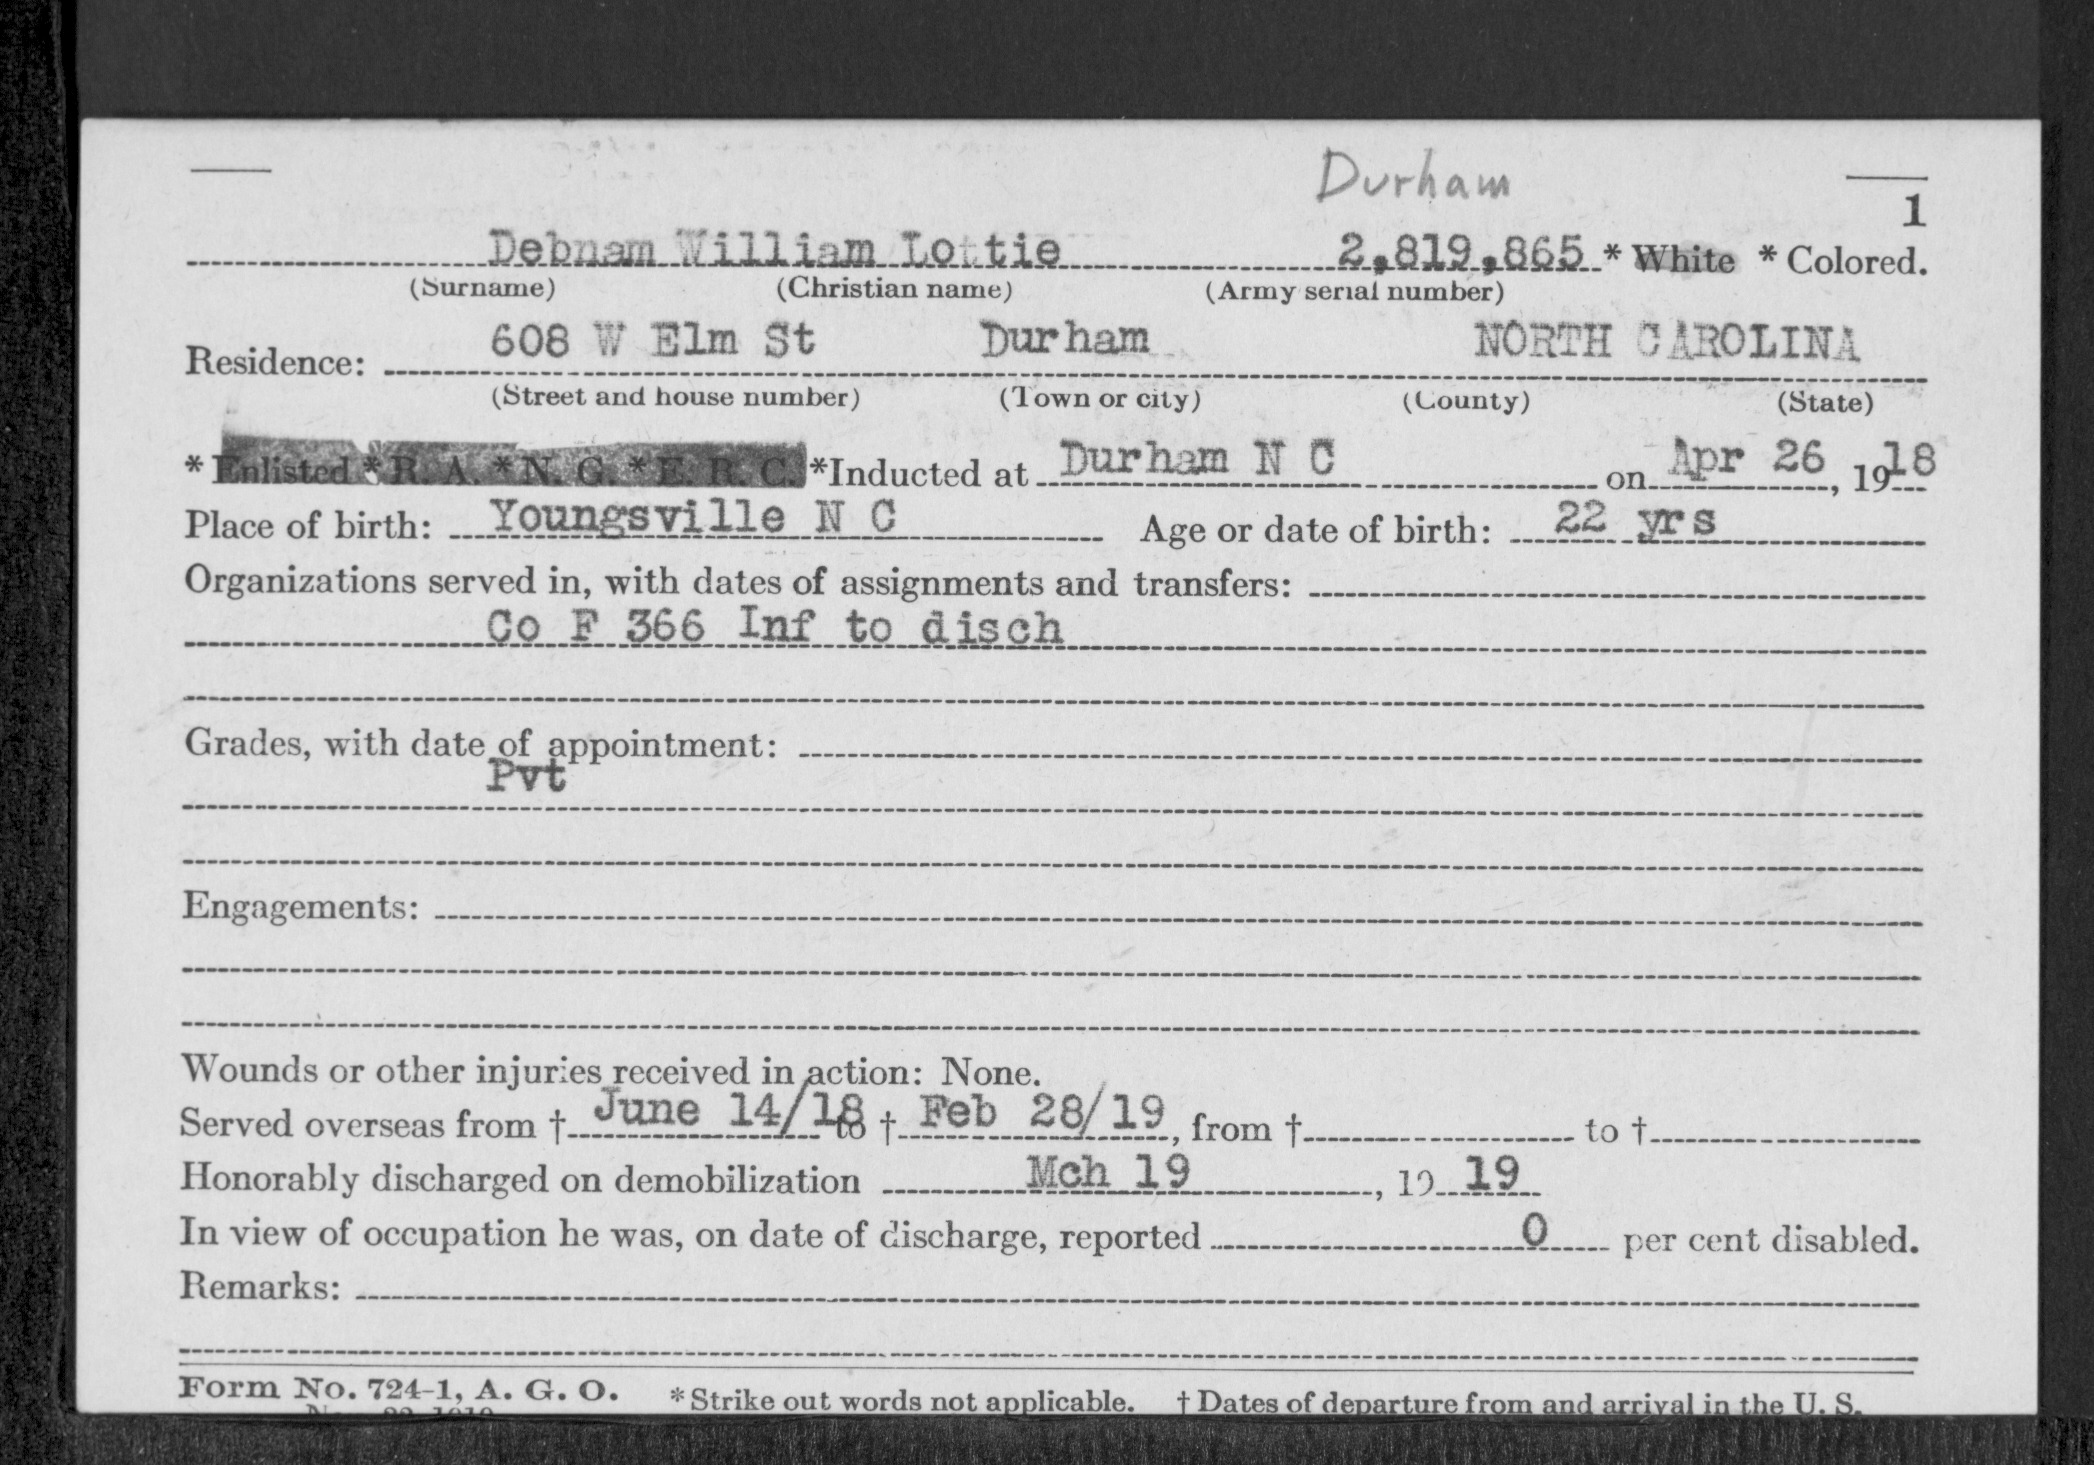 Durham
1
Debnam William Lottie 2,819,865 * White * Colored.
(Surname) (Christian name) (Army serial number)
Residence: 608 W Elm St Durham NORTH CAROLINA
(Street and house number) (Town or city) (County) (State)
* Enlisted * R. A. * N. G. * E. R. C. *Inducted at Durham N C on Apr 26, 1918
Place of birth: Youngsville N C Age or date of birth: 22 yrs
Organizations served in, with dates of assignments and transfers:
Co F 366 Inf to disch
Grades, with date of appointment:
Pvt
Engagements:
Wounds or other injuries received in action: None.
Served overseas from † June 14/18 to † Feb 28/19, from † to †
Honorably discharged on demobilization Mch 19, 19 19
In view of occupation he was, on date of discharge, reported 0 per cent disabled.
Remarks:
Form No. 724-1, A. G. O. * Strike out words not applicable. † Dates of departure from and arrival in the U. S.